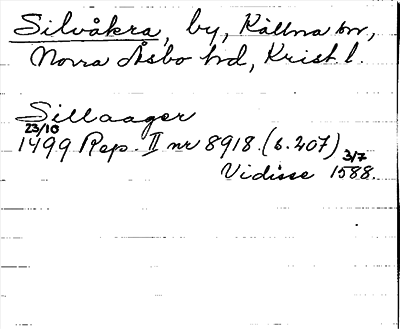 Silvåkra, by, Källna sn,
Norra Åsbo hd, Krist. l.
Sillaager
23/10
1499 Rep. II nr 8918. (s. 207)
Vidisse 3/7 1588.